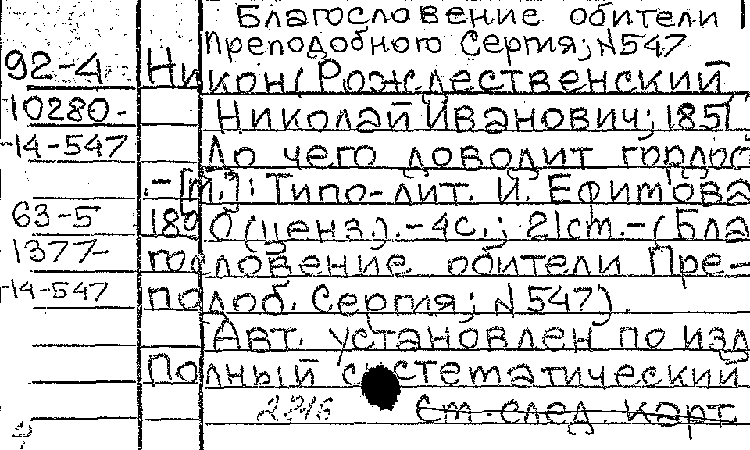 Благословение обители
Преподобного Сергия; N547
92-4 Никон (Рожлественский
10280- Николай Иванович; 185
14-547 До чего доводит гордос
.-[м.]: Типо-лит. И. Ефимова
63-5 189 0 (ценз.).-4с.; 21см.-(Бла
1377- гословение обители Пре-
14-547 подоб. Сергия; N547).
Авт. установлен по изд
Полный систематический
См. след карт.